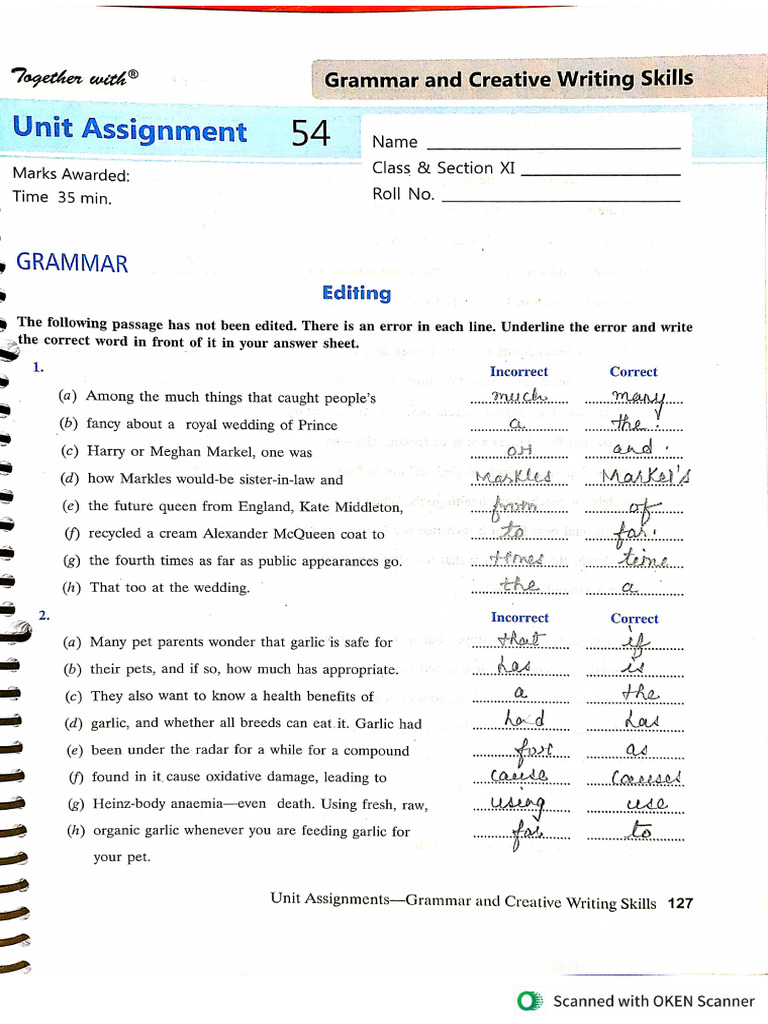 Together with®
Grammar and Creative Writing Skills
Unit Assignment 54
Name
Marks Awarded:
Class & Section XI
Time 35 min.
Roll No.
GRAMMAR
Editing
The following passage has not been edited. There is an error in each line. Underline the error and write
the correct word in front of it in your answer sheet.
1. Incorrect Correct
(a) Among the much things that caught people's much many
(b) fancy about a royal wedding of Prince a the
(c) Harry or Meghan Markel, one was or and
(d) how Markles would-be sister-in-law and Markles Markel's
(e) the future queen from England, Kate Middleton, from of
(f) recycled a cream Alexander McQueen coat to to for
(g) the fourth times as far as public appearances go. times time
(h) That too at the wedding. the a
2. Incorrect Correct
(a) Many pet parents wonder that garlic is safe for that if
(b) their pets, and if so, how much has appropriate. has is
(c) They also want to know a health benefits of a the
(d) garlic, and whether all breeds can eat it. Garlic had had has
(e) been under the radar for a while for a compound for as
(f) found in it cause oxidative damage, leading to cause causes
(g) Heinz-body anaemia—even death. Using fresh, raw, using use
(h) organic garlic whenever you are feeding garlic for for to
your pet.
Unit Assignments—Grammar and Creative Writing Skills 127
Scanned with OKEN Scanner